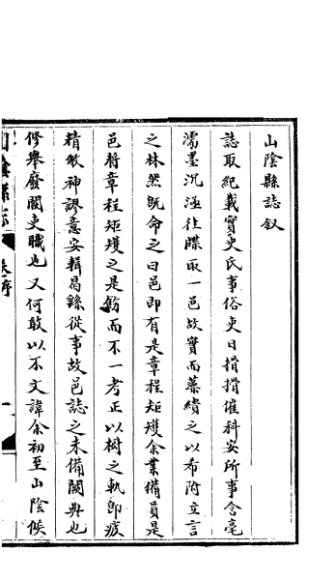 山陰縣誌叙
誌取紀載實史氏事俗吏日揹揹催科安所事含毫
濡墨沉涵往牒取一邑故實而藻繢之以希附立言
之林然既命之曰邑即有是章程矩矱余業備員是
邑將章程矩矱之是飭而不一考正以樹之軌即疲
精敝神謬意安輯曷繇從事故邑誌之未備闕典也
修舉廢闕吏職也又何敢以不文諱余初至山陰候
山陰縣志
序